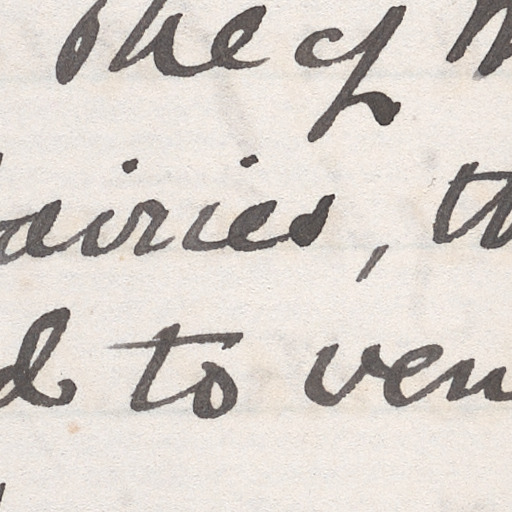 the of
airies, th
d to ven